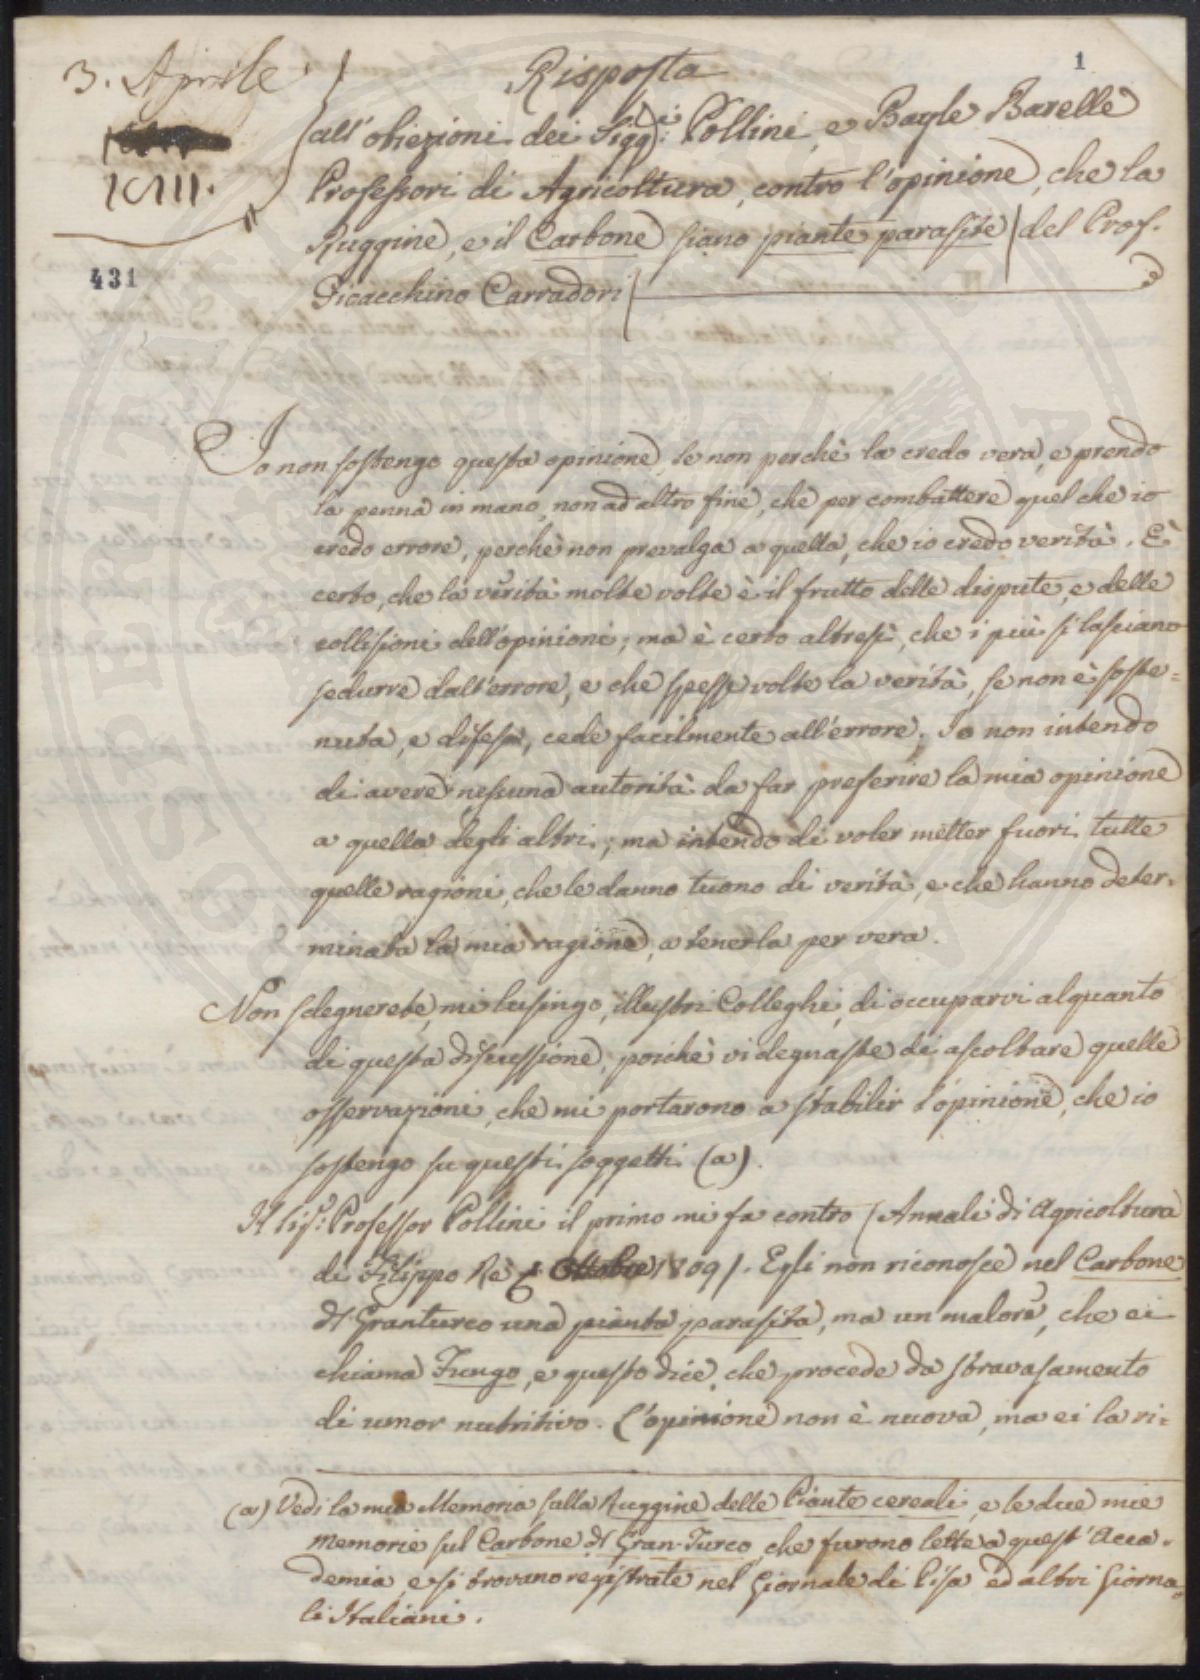 1
3. Aprile
1811.
431
Risposta
all'obiezioni dei Sigg.i Pollini, e Bayle Barelle
Professori di Agricoltura, contro l'opinione, che la
Ruggine, e il Carbone siano piante parasite / del Prof.
Gioacchino Carradori /
Io non sostengo questa opinione, se non perchè la credo vera, e prendo
la penna in mano, non ad altro fine, che per combattere quel che io
credo errore, perchè non prevalga a quella, che io credo verità. È
certo, che la verità molte volte è il frutto delle dispute, e delle
collisioni dell'opinioni; ma è certo altresì, che i più si lasciano
sedurre dall'errore, e che spesse volte la verità, se non è soste=
nuta, e difesa, cede facilmente all'errore. Io non intendo
di avere nessuna autorità da far preferire la mia opinione
a quella degli altri; ma intendo di voler metter fuori tutte
quelle ragioni, che le danno tuono di verità, e che hanno deter=
minata la mia ragione, a tenerla per vera.
Non sdegnerete, mi lusingo, illustri Colleghi, di occuparvi alquanto
di questa discussione, poichè vi degnaste di ascoltare quelle
osservazioni, che mi portarono a stabilir l'opinione, che io
sostengo su questi soggetti (a).
Il Sig.r Professor Pollini il primo mi fa contro / Annali di Agricoltura
di Filippo Rè Ottobre 1809 /. Egli non riconosce nel Carbone
di Granturco una pianta parasita, ma un malore, che ei
chiama Fungo, e questo dice, che procede da stravasamento
di umor nutritivo. L'opinione non è nuova, ma ei la ri=
(a) Vedi la mia Memoria sulla Ruggine delle Piante cereali, e le due mie
memorie sul Carbone di Gran-Turco, che furono lette a quest'Acca=
demia, e si trovano registrate nel Giornale di Pisa ed altri Giorna=
li Italiani.